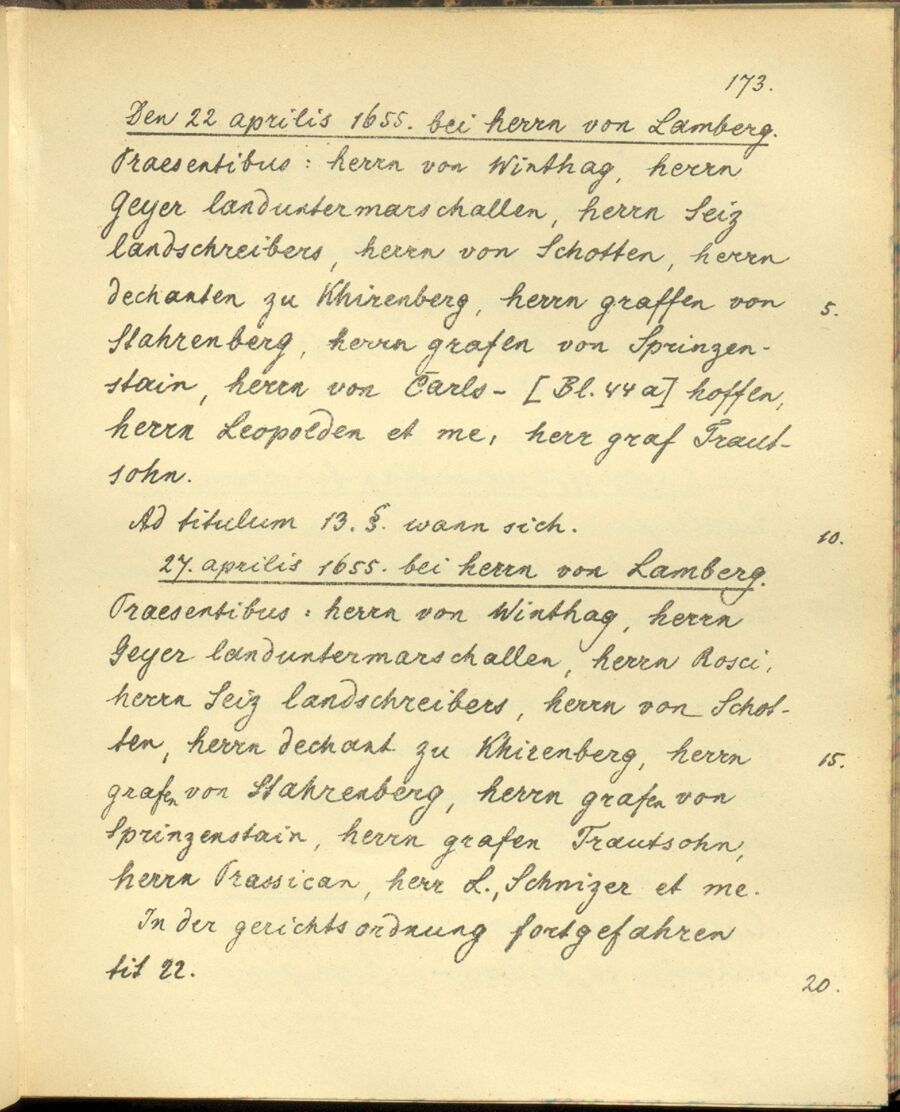 173.
Den 22 aprilis 1655. bei herrn von Lamberg.
Praesentibus: herrn von Winthag, herrn
Geyer landuntermarschallen, herrn Seiz
landschreibers, herrn von Schotten, herrn
dechanten zu Khirenberg, herrn graffen von 5.
Stahrenberg, herrn grafen von Sprinzen-
stain, herrn von Carls- [Bl. 44a] hoffen,
herrn Leopolden et me, herr graf Traut-
sohn.
Ad titulum 13. §. wann sich. 10.
27. aprilis 1655. bei herrn von Lamberg.
Praesentibus: herrn von Winthag, herrn
Geyer landuntermarschallen, herrn Rosci,
herrn Seiz landschreibers, herrn von Schot-
ten, herrn dechant zu Khirenberg, herrn 15.
grafen von Stahrenberg, herrn grafen von
Sprinzenstain, herrn grafen Trautsohn,
herrn Prassican, herr L., Schnizer et me.
In der gerichtsordnung fortgefahren
tit 22. 20.